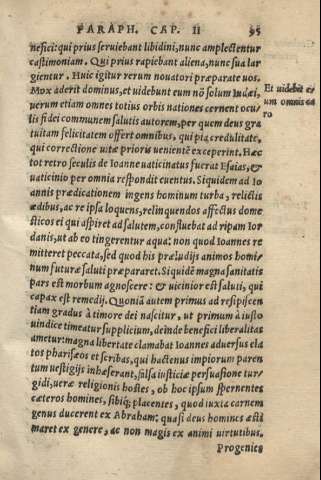 PARAPH. CAP. II 95
nefici: qui prius seruiebant libidini, nunc amplectentur
castimoniam. Qui prius rapiebant aliena, nunc sua lar
gientur. Huic igitur rerum nouatori præparate uos.
Mox aderit dominus, et uidebunt eum nõ solum Iudæi,
uerum etiam omnes totius orbis nationes cernent ocu/
lis fidei communem salutis autorem, per quem deus gra
tuitam felicitatem offert omnibus, qui pia credulitate,
qui correctione uitæ prioris uenientẽ exceperint. Hæc
tot retro seculis de Ioanne uaticinatus fuerat Esaias, &
uaticinio per omnia respondit euentus. Siquidem ad Io
annis prædicationem ingens hominum turba, relictis
ædibus, ac re ipsa loquens, relinquendos affectus dome
sticos ei qui aspiret ad salutem, confluebat ad ripam Ior
danis, ut ab eo tingerentur aqua: non quod Ioannes re
mitteret peccata, sed quod his præludijs animos homi/
num futuræ saluti præpararet. Siquidẽ magna sanitatis
pars est morbum agnoscere: & uicinior est saluti, qui
capax est remedij. Quoniã autem primus ad resipiscen
tiam gradus à timore dei nascitur, ut primum à iusto
uindice timeatur supplicium, deinde benefici liberalitas
ametur: magna libertate clamabat Ioannes aduersus ela
tos pharisæos et scribas, qui hactenus impiorum paren
tum uestigijs inhæserant, falsa iusticiæ persuasione tur/
gidi, ueræ religionis hostes, ob hoc ipsum spernentes
cæteros homines, sibiq; placentes, quod iuxta carnem
genus ducerent ex Abraham: quasi deus homines æsti
maret ex genere, ac non magis ex animi uirtutibus.
Progenies
Et uidebit o
um omnis ca
ro